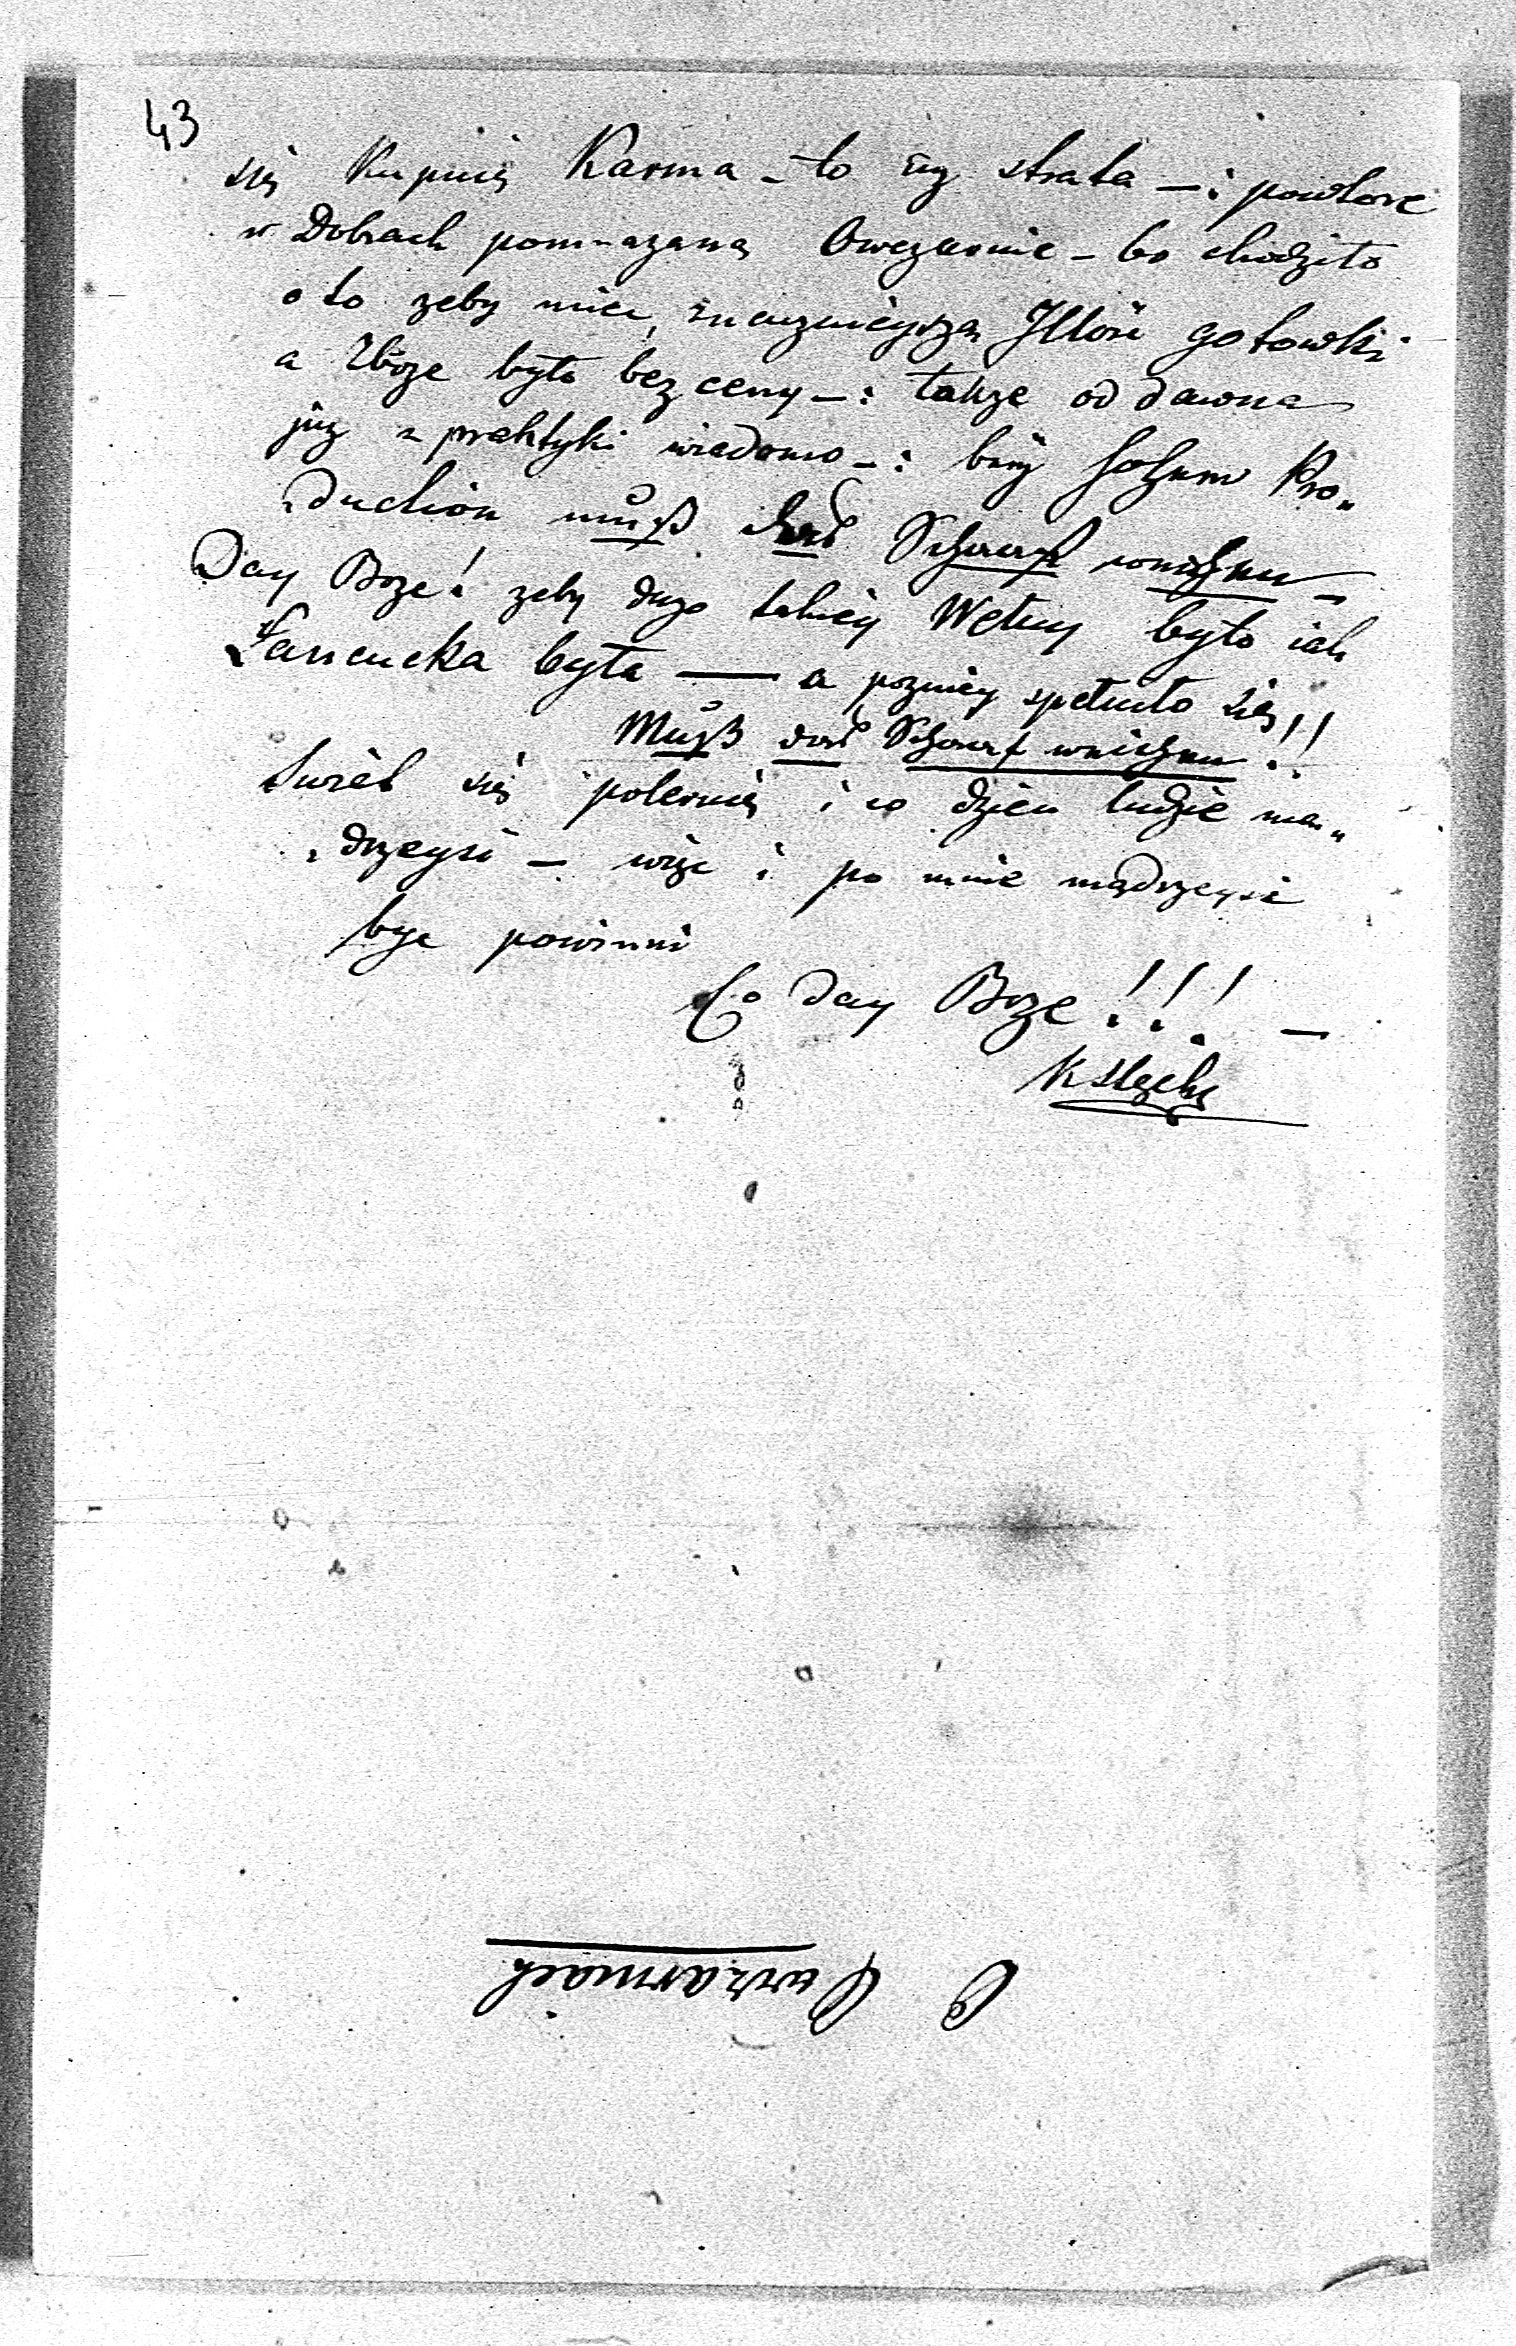 43
się kupuię Karma – to iuż strata – i powtore
w Dobrach pomnazano Owczarnie – bo chodziło
o to zeby miec znacznieyszą Illość gotowki
a Zboze było bez ceny – : takze od dawna
juz z praktyki wiadomo – : bey hohem Pro„
„duction muß das Schaaf weichen –
Day Boze! zeby duzo takiey Wełny było iak
Łancucka była — a pozniey spełniło się!!
Muß das Schaaf weichen!!
Swiat się poleruie i co dzien ludzie mą„
„drzeysi – więc i po mnie mądrzeysi
byc powinni
Co day Boze!!! –
O Owczarniach